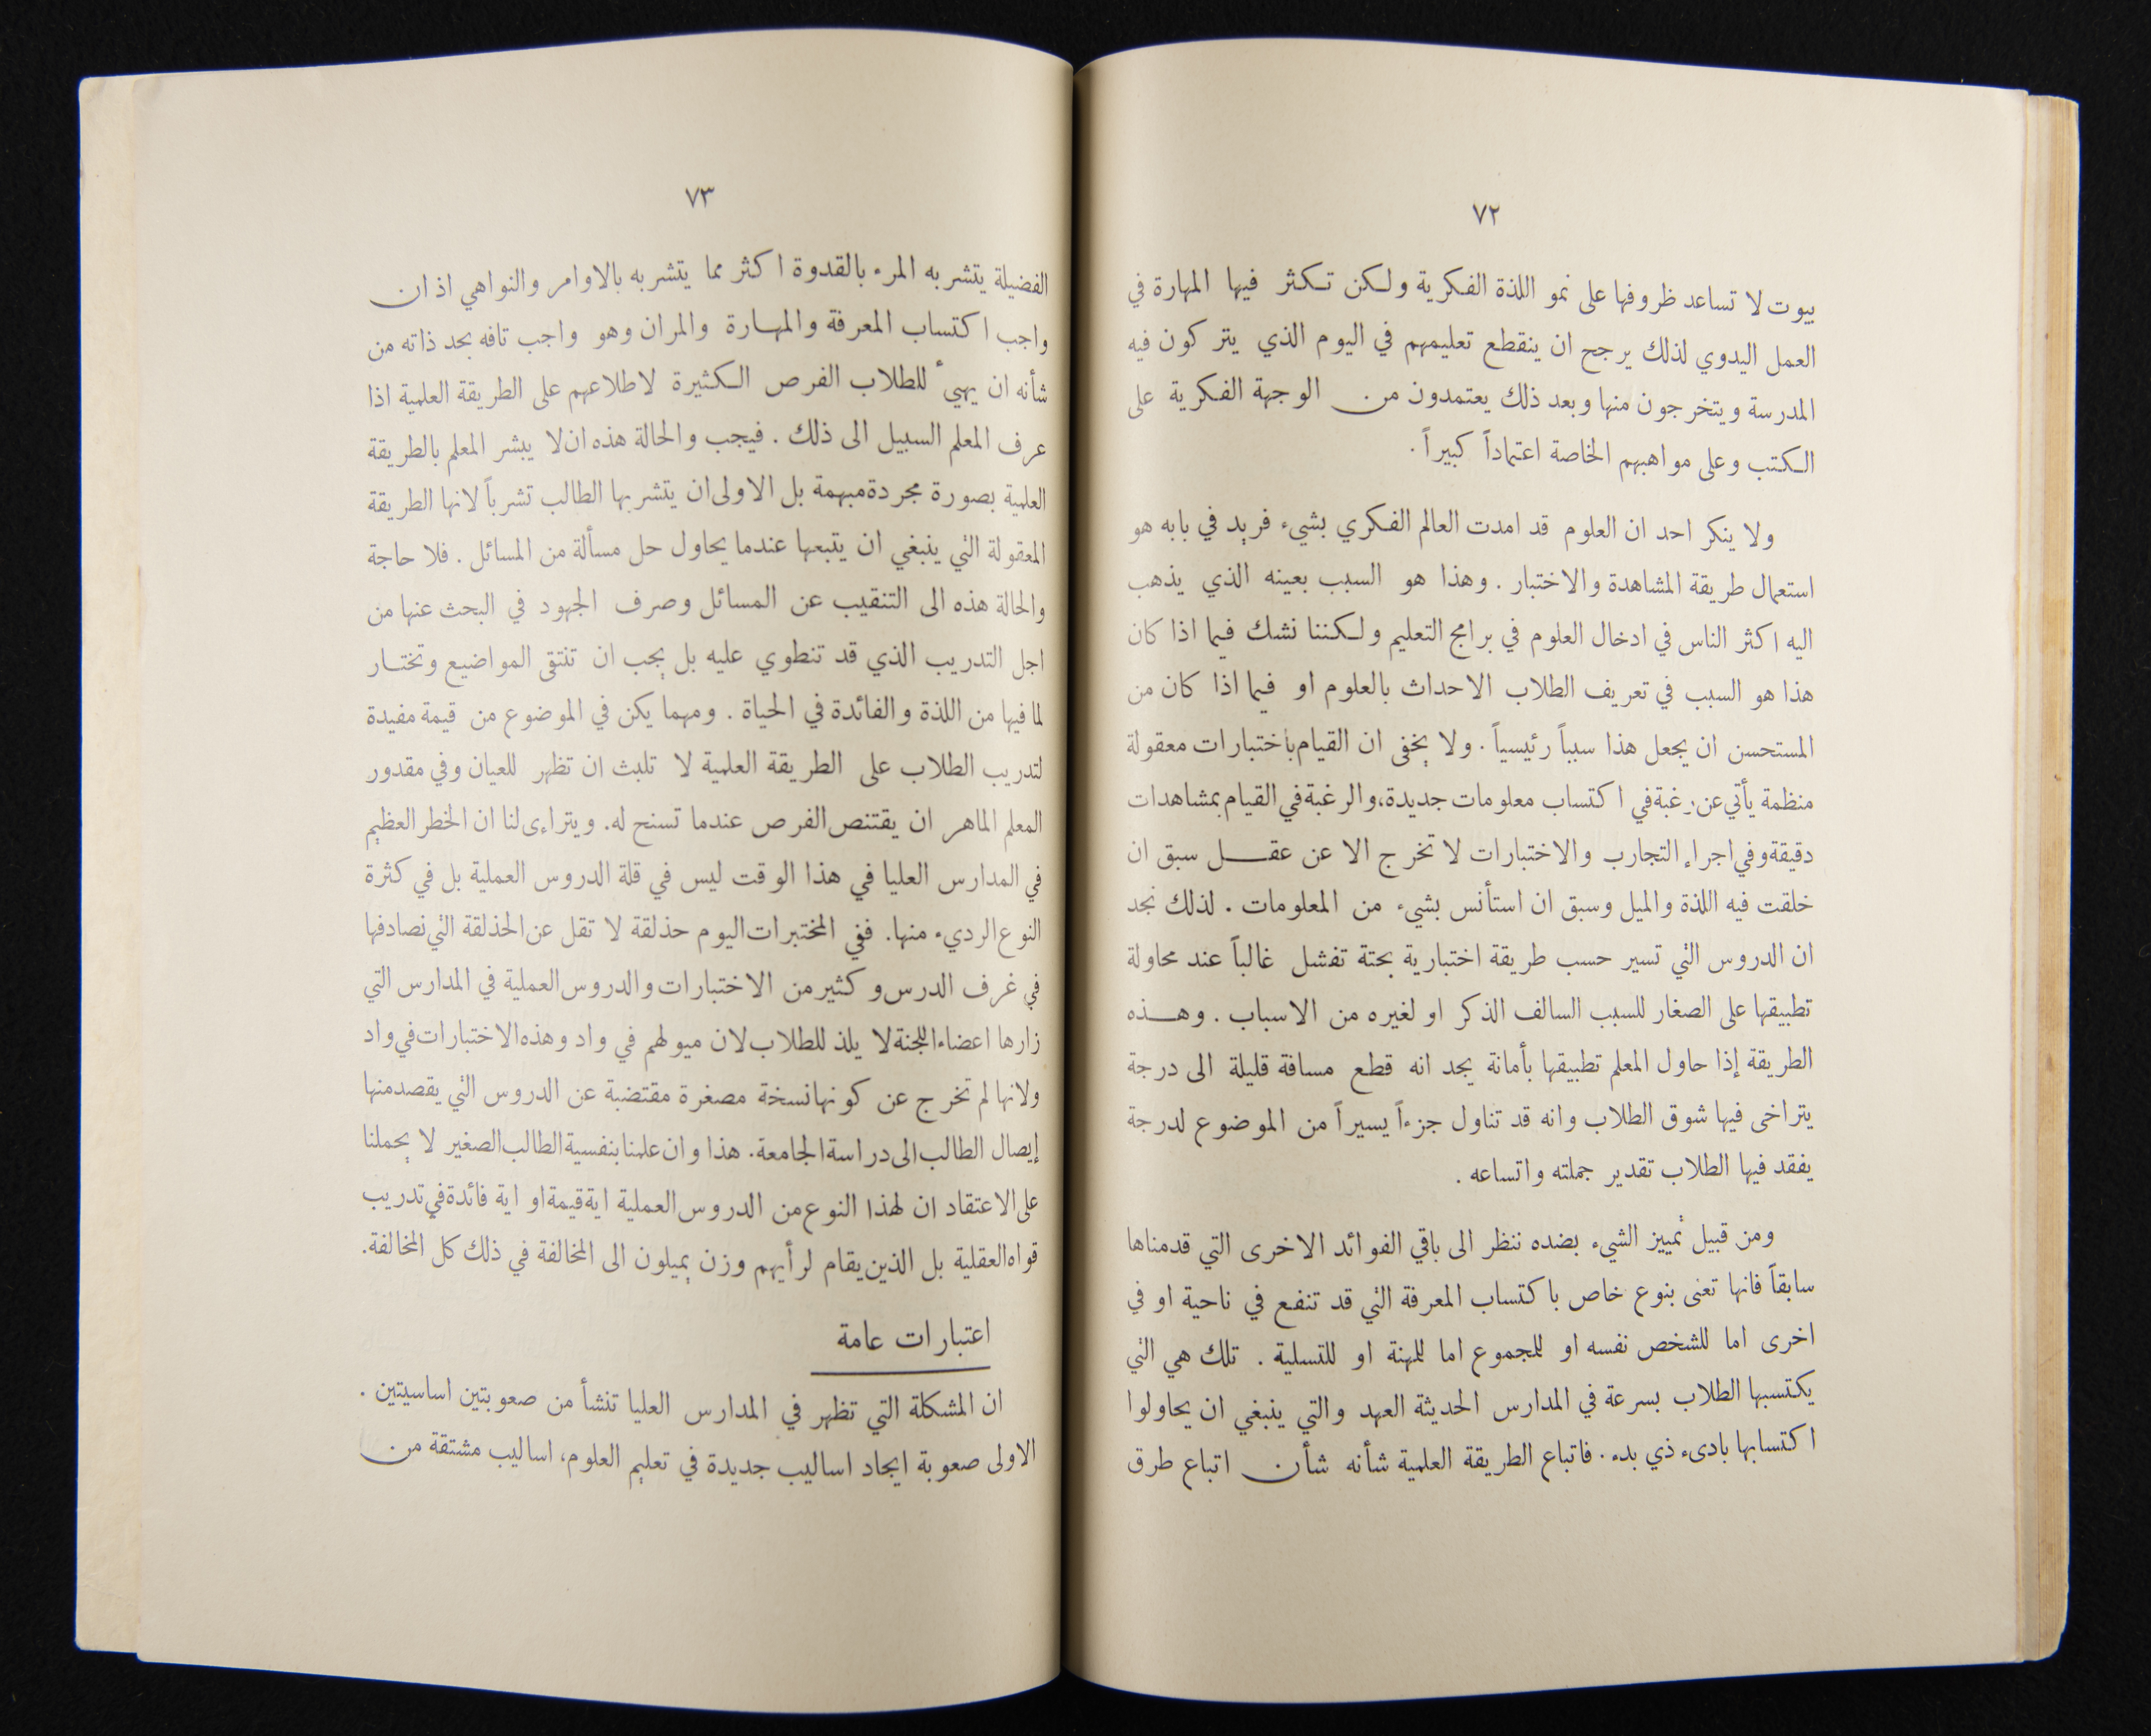 ٧٢
بيوت لا تساعد ظروفها على نمو اللذة الفكرية ولكن تكثر فيها المهارة في
العمل اليدوي لذلك يرجح ان ينقطع تعليمهم في اليوم الذي يتركون فيه
المدرسة ويتخرجون منها وبعد ذلك يعتمدون من الوجهة الفكرية على
الكتب وعلى مواهبهم الخاصة اعتماداً كبيراً.
ولا ينكر احد ان العلوم قد امدت العالم الفكري بشيء فريد في بابه هو
استعمال طريقة المشاهدة والاختبار. وهذا هو السبب بعينه الذي يذهب
اليه اكثر الناس في ادخال العلوم في برامج التعليم ولكننا نشك فيما اذا كان
هذا هو السبب في تعريف الطلاب الاحداث بالعلوم او فيما اذا كان من
المستحسن ان يجعل هذا سبباً رئيسياً. ولا يخفى ان القيام باختبارات معقولة
منظمة يأتي عن رغبة في اكتساب معلومات جديدة، والرغبة في القيام بمشاهدات
دقيقة وفي اجراء التجارب والاختبارات لا تخرج الا عن عقل سبق ان
خلقت فيه اللذة والميل وسبق ان استأنس بشيء من المعلومات. لذلك نجد
ان الدروس التي تسير حسب طريقة اختبارية بحتة تفشل غالباً عند محاولة
تطبيقها على الصغار للسبب السالف الذكر او لغيره من الاسباب. وهذه
الطريقة إذا حاول المعلم تطبيقها بأمانة يجد انه قطع مسافة قليلة الى درجة
يتراخى فيها شوق الطلاب وانه قد تناول جزءاً يسيراً من الموضوع لدرجة
يفقد فيها الطلاب تقدير جملته واتساعه.
ومن قبيل تمييز الشيء بضده ننظر الى باقي الفوائد الاخرى التي قدمناها
سابقاً فانها تعنى بنوع خاص باكتساب المعرفة التي قد تنفع في ناحية او في
اخرى اما للشخص نفسه او للمجموع اما للمهنة او للتسلية. تلك هي التي
يكتسبها الطلاب بسرعة في المدارس الحديثة العهد والتي ينبغي ان يحاولوا
اكتسابها بادىء ذي بدء. فاتباع الطريقة العلمية شأنه شأن اتباع طرق
٧٣
الفضيلة يتشربه المرء بالقدوة اكثر مما يتشربه بالاوامر والنواهي اذ ان
واجب اكتساب المعرفة والمهارة والمران وهو واجب تافه بحد ذاته من
شأنه ان يهيىء للطلاب الفرص الكثيرة لاطلاعهم على الطريقة العلمية اذا
عرف المعلم السبيل الى ذلك. فيجب والحالة هذه ان لا يبشر المعلم بالطريقة
العلمية بصورة مجردة مبهمة بل الاولى ان يتشربها الطالب تشرباً لانها الطريقة
المعقولة التي ينبغي ان يتبعها عندما يحاول حل مسألة من المسائل. فلا حاجة
والحالة هذه الى التنقيب عن المسائل وصرف الجهود في البحث عنها من
اجل التدريب الذي قد تنطوي عليه بل يجب ان تنتقى المواضيع وتختار
لما فيها من اللذة والفائدة في الحياة. ومهما يكن في الموضوع من قيمة مفيدة
لتدريب الطلاب على الطريقة العلمية لا تلبث ان تظهر للعيان وفي مقدور
المعلم الماهر ان يقتنص الفرص عندما تسنح له. ويتراءى لنا ان الخطر العظيم
في المدارس العليا في هذا الوقت ليس في قلة الدروس العملية بل في كثرة
النوع الرديء منها. ففي المختبرات اليوم حذلقة لا تقل عن الحذلقة التي نصادفها
في غرف الدرس وكثير من الاختبارات والدروس العملية في المدارس التي
زارها اعضاء اللجنة لا يلذ للطلاب لان ميولهم في واد وهذه الاختبارات في واد
ولانها لم تخرج عن كونها نسخة مصغرة مقتضبة عن الدروس التي يقصد منها
إيصال الطالب الى دراسة الجامعة. هذا وان علمنا بنفسية الطالب الصغير لا يحملنا
على الاعتقاد ان لهذا النوع من الدروس العملية اية قيمة او اية فائدة في تدريب
قواه العقلية بل الذين يقام لرأيهم وزن يميلون الى المخالفة في ذلك كل المخالفة.
اعتبارات عامة
ان المشكلة التي تظهر في المدارس العليا تنشأ من صعوبتين اساسيتين.
الاولى صعوبة ايجاد اساليب جديدة في تعليم العلوم، اساليب مشتقة من